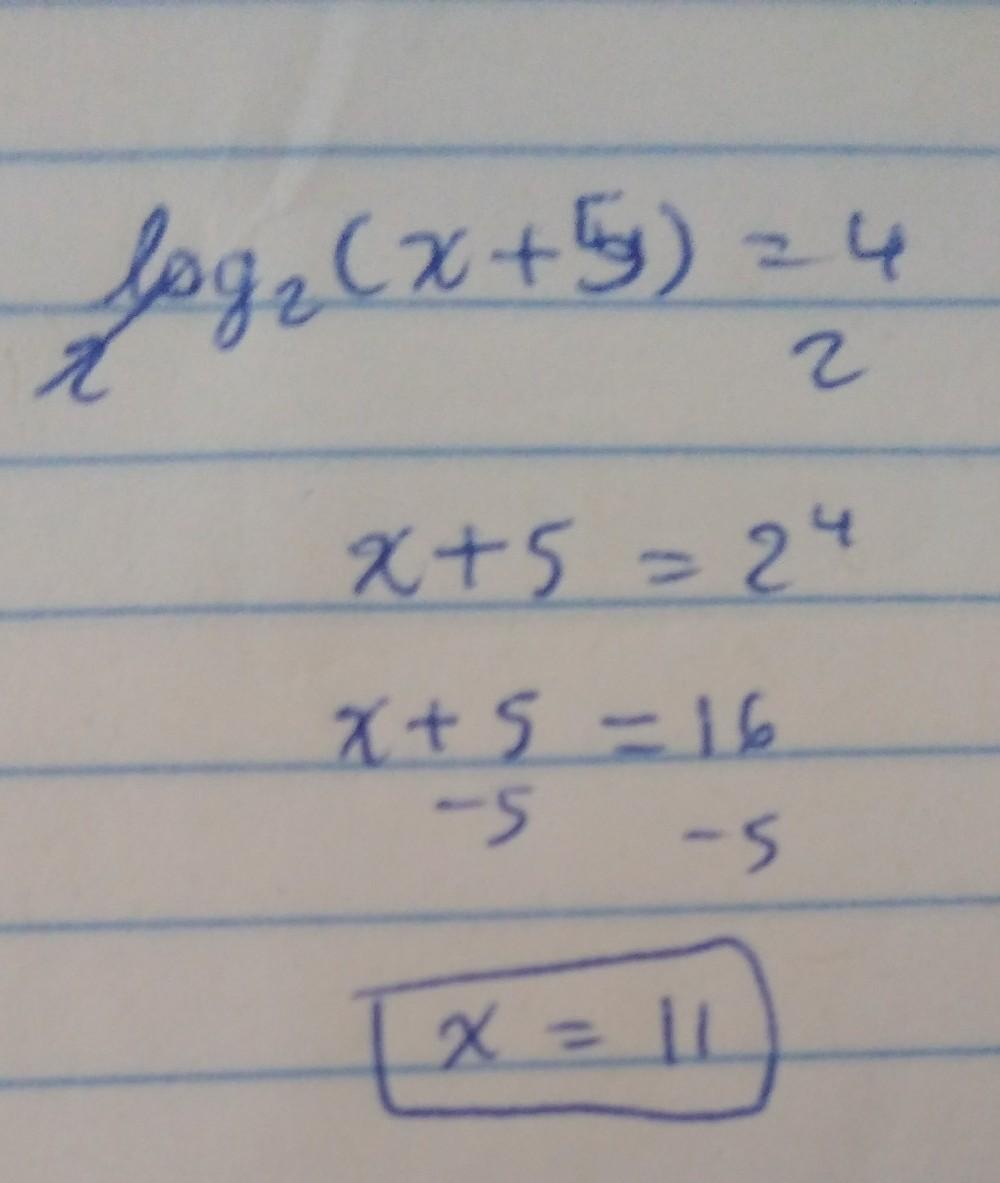 log₂(x+5) = 4
2 2
x+5 = 2⁴
x+5 = 16
-5 -5
x = 11